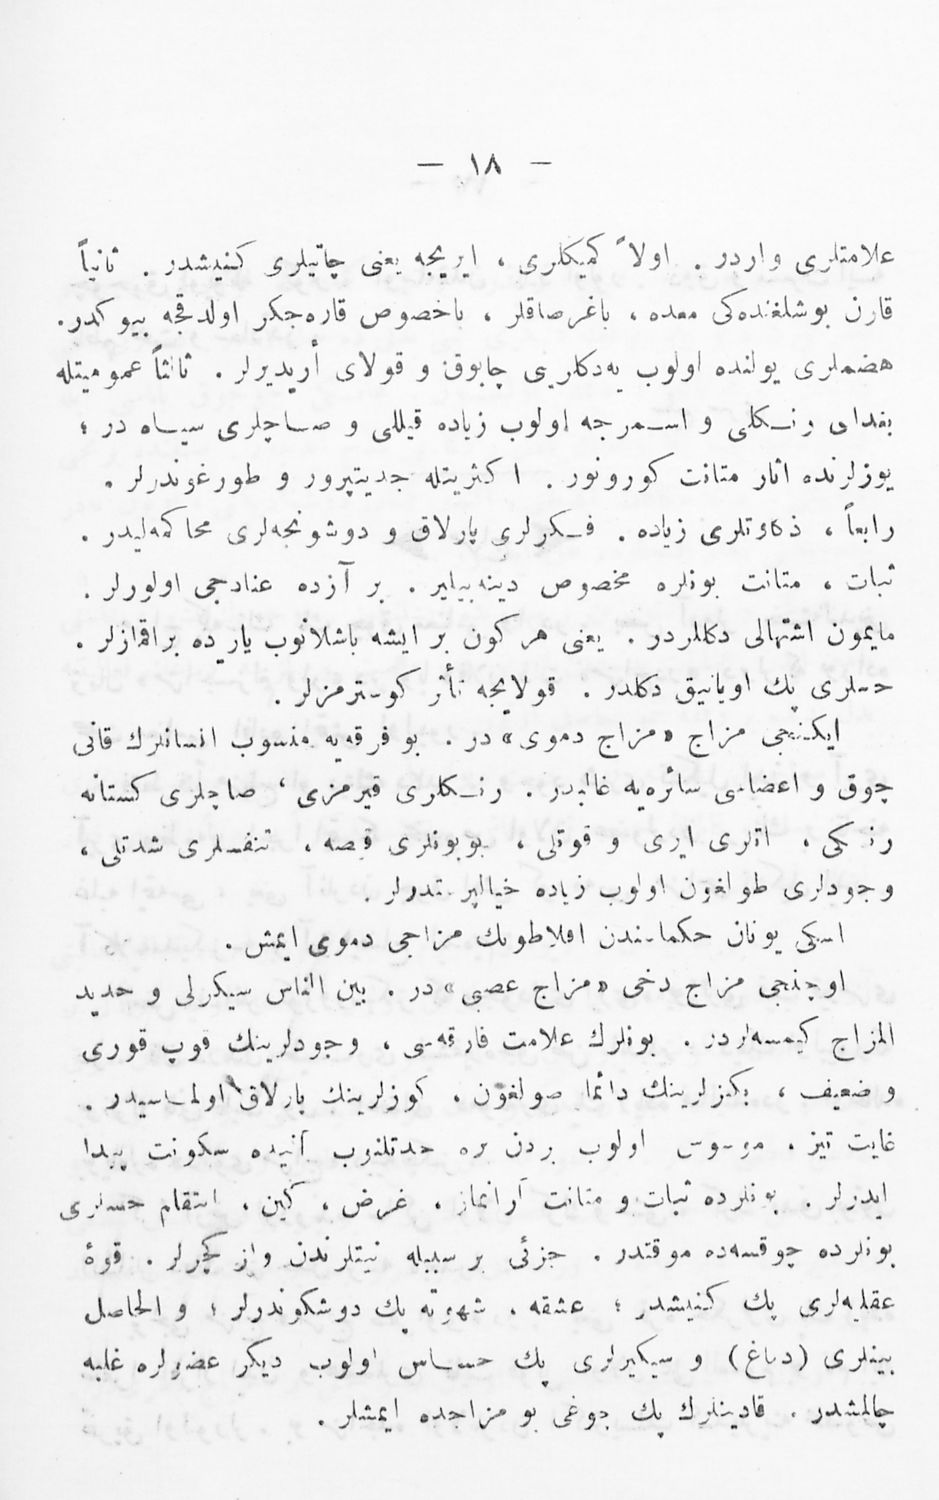 — ١٨ —
علامتلری واردر . اولاً كمیكلری ، ایریجه یعنی چاتیلری كنیشدر . ثانیاً
قارن بوشلغنده‌كی معده ، باغرصاقلر ، باخصوص قاره‌جكر اولدقجه بیوكدر.
هضملری یولنده اولوب یه‌دكلرینی چابوق و قولای أریدیرلر . ثالثاً عمومیتله
بغدای رنكلی و اسمرجه اولوب زیاده قیللی و صاچلری سیاه در ؛
یوزلرنده اثار متانت كورونور . اكثریتله جدیتپرور و طورغوندرلر .
رابعاً ، ذكاوتلری زیاده . فكرلری پارلاق و دوشونجه‌لری محاكمه‌لیدر .
ثبات ، متانت بونلره مخصوص دینه‌بیلیر . بر آزده عنادجی اولورلر .
مایمون اشتهالی دكللردر . یعنی هر كون بر ایشه باشلانوب یاریده براقمازلر .
حسلری پك اویانیق دكلدر . قولایجه تأثر كوسترمزلر .
ایكنجی مزاج «مزاج دموی» در . بو فرقه‌یه منسوب انسانلرك قانی
چوق و اعضای سائره‌یه غالبدر . رنكلری قیرمزی ، صاچلری كستانه
رنكی ، اتلری ایری و قوتلی ، بویونلری قصه ، تنفسلری شدتلی ،
وجودلری طولغون اولوب زیاده خیالپرستدرلر .
اسكی یونان حكماسندن افلاطونك مزاجی دموی ایمش .
اوچنجی مزاج دخی «مزاج عصبی» در . بین الناس سیكرلی و حدید
المزاج كیمسه‌لردر . بونلرك علامت فارقه‌سی ، وجودلرینك قوپ قوری
و ضعیف ، بكزلرینك دائما صولغون . كوزلرینك پارلاق اولماسیدر .
غایت تیز . موسوس اولوب بردن بره حدتلنوب آنیده سكونت پیدا
ایدرلر . بونلرده ثبات و متانت آرانماز . غرض ، كین ، انتقام حسلری
بونلرده چوقسه‌ده موقتدر . جزئی بر سببله نیتلرندن واز كچرلر . قوهٔ
عقلیه‌لری پك كنیشدر ؛ عشقه . شهوته پك دوشكوندرلر ؛ و الحاصل
بینلری (دماغ) و سیكیرلری پك حساس اولوب دیكر عضولره غلبه
چالمشدر . قادینلرك پك چوغی بو مزاجده ایمشلر .